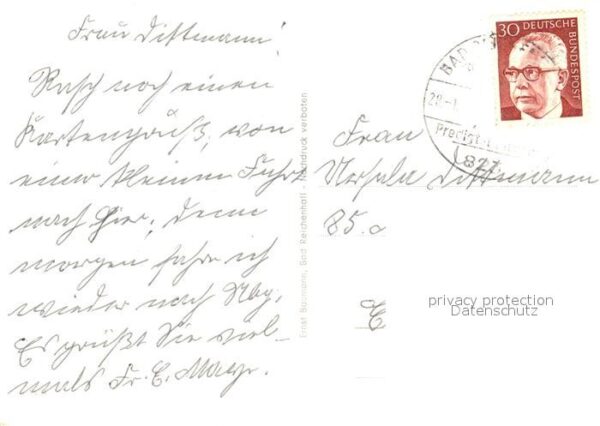 Frau Dittmann!
Rasch noch einen
Kartengruß, von
einer kleinen Fahrt
nach hier, denn
morgen fahre ich
wieder nach
Es grüßt Sie viel-
mals Fr. E.
Ernst Baumann, Bad Reichenhall - Nachdruck verboten
30 DEUTSCHE
BUNDESPOST
BAD
Frau
Ursula Dittmann
85.a
E
privacy protection
Datenschutz